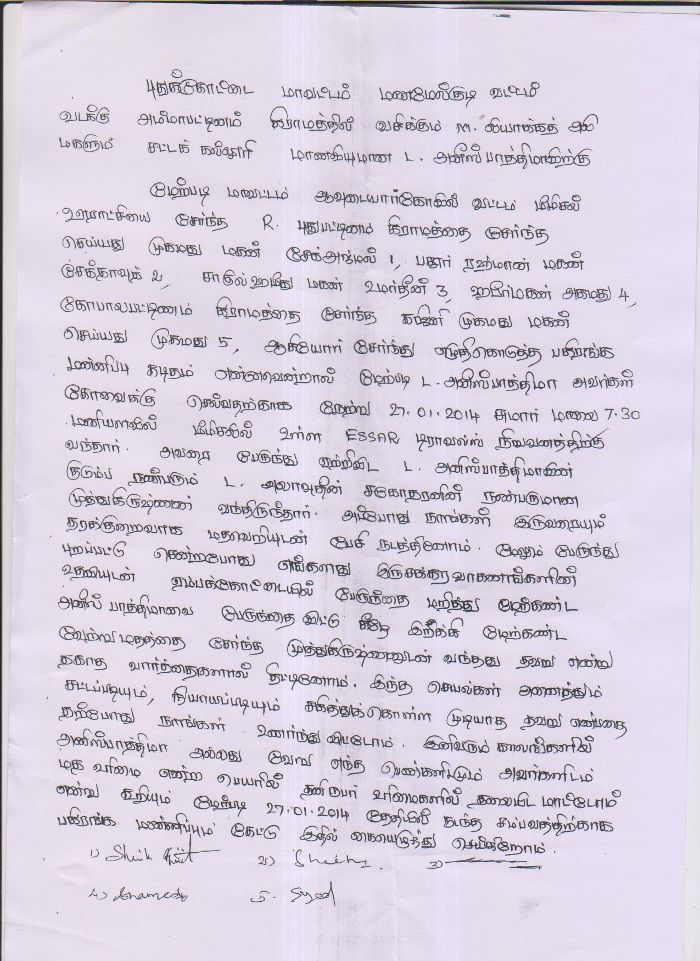 புதுக்கோட்டை மாவட்டம் மணமேல்குடி வட்டம்
வடக்கு அம்மாபட்டினம் கிராமத்தில் வசிக்கும் M. லியாக்கத் அலி
மகளும் சட்டக் கல்லூரி மாணவியுமான L. அனீஸ் பாத்திமாவிற்கு
மேற்படி மாவட்டம் ஆவுடையார்கோவில் வட்டம் மீமிசல்
ஊராட்சியை சேர்ந்த R. புதுபட்டினம் கிராமத்தை சேர்ந்த
செய்யது முகமது மகன் 1, பஜூர் ரஹ்மான் மகன்
2, சாகுல் ஹமீது மகன் உமர்தீன் 3, மகன் அகமது 4,
கோபாலபட்டிணம் கிராமத்தை சேர்ந்த முகமது மகன்
செய்யது முகமது 5, ஆகியோர் சேர்ந்து எழுதிகொடுத்த பகிரங்க
மன்னிப்பு கடிதம் என்னவென்றால் மேற்படி L. அனீஸ்பாத்திமா அவர்கள்
கோவைக்கு செல்வதற்காக நேற்று 27.01.2014 சுமார் மாலை 7.30
மணியளவில் மீமிசலில் உள்ள ESSAR டிராவல்ஸ் நிறுவனத்திற்கு
வந்தார். அவரை பேருந்து ஏற்றிவிட L. அனிஸ்பாத்திமாவின்
குடும்ப நண்பரும் L. அலாவுதீன் சகோதரனின் நண்பருமான
முத்துகிருஷ்ணன் வந்திருந்தார். அப்போது நாங்கள் இருவரையும்
தரக்குறைவாக மதவெறியுடன் பேசி நடத்தினோம். மேலும் பேருந்து
புறப்பட்டு சென்றபோது எங்களது இருசக்கர வாகனங்களின்
உதவியுடன் ஏம்பக்கோட்டையில் பேருந்தை மறித்து மேற்கண்ட
அனீஸ் பாத்திமாவை பேருந்தை விட்டு கீழே இறக்கி மேற்கண்ட
வேற்று மதத்தை சேர்ந்த முத்துகிருஷ்ணனுடன் வந்தது தவறு என்று
தகாத வார்த்தைகளால் திட்டினோம். இந்த செயல்கள் அனைத்தும்
சட்டப்படியும், நியாயப்படியும் சகித்துக்கொள்ள முடியாத தவறு என்பதை
தற்போது நாங்கள் உணர்ந்து விட்டோம். இனிவரும் காலங்களில்
அனிஸ்பாத்திமா அல்லது வேறு எந்த பெண்களிடமும் அவர்களிடம்
மத உரிமை என்ற பெயரில் தனிநபர் உரிமைகளில் தலையிட மாட்டோம்
என்று கூறியும் மேற்படி 27.01.2014 தேதியில் நடந்த சம்பவத்திற்காக
பகிரங்க மன்னிப்பும் கேட்டு இதில் கையெழுத்து செய்கிறோம்.
1) Sheik 2) 3)
4) Ahamed 5. Syed